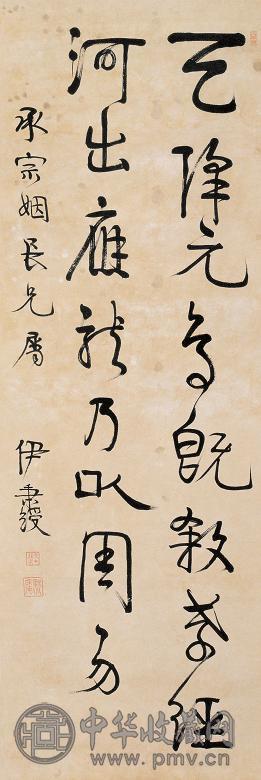 天降元鳥既叙孝經
河出應龍乃以周易
承宗姻長兄屬 伊秉綬
中华收藏网
www.pmv.cn